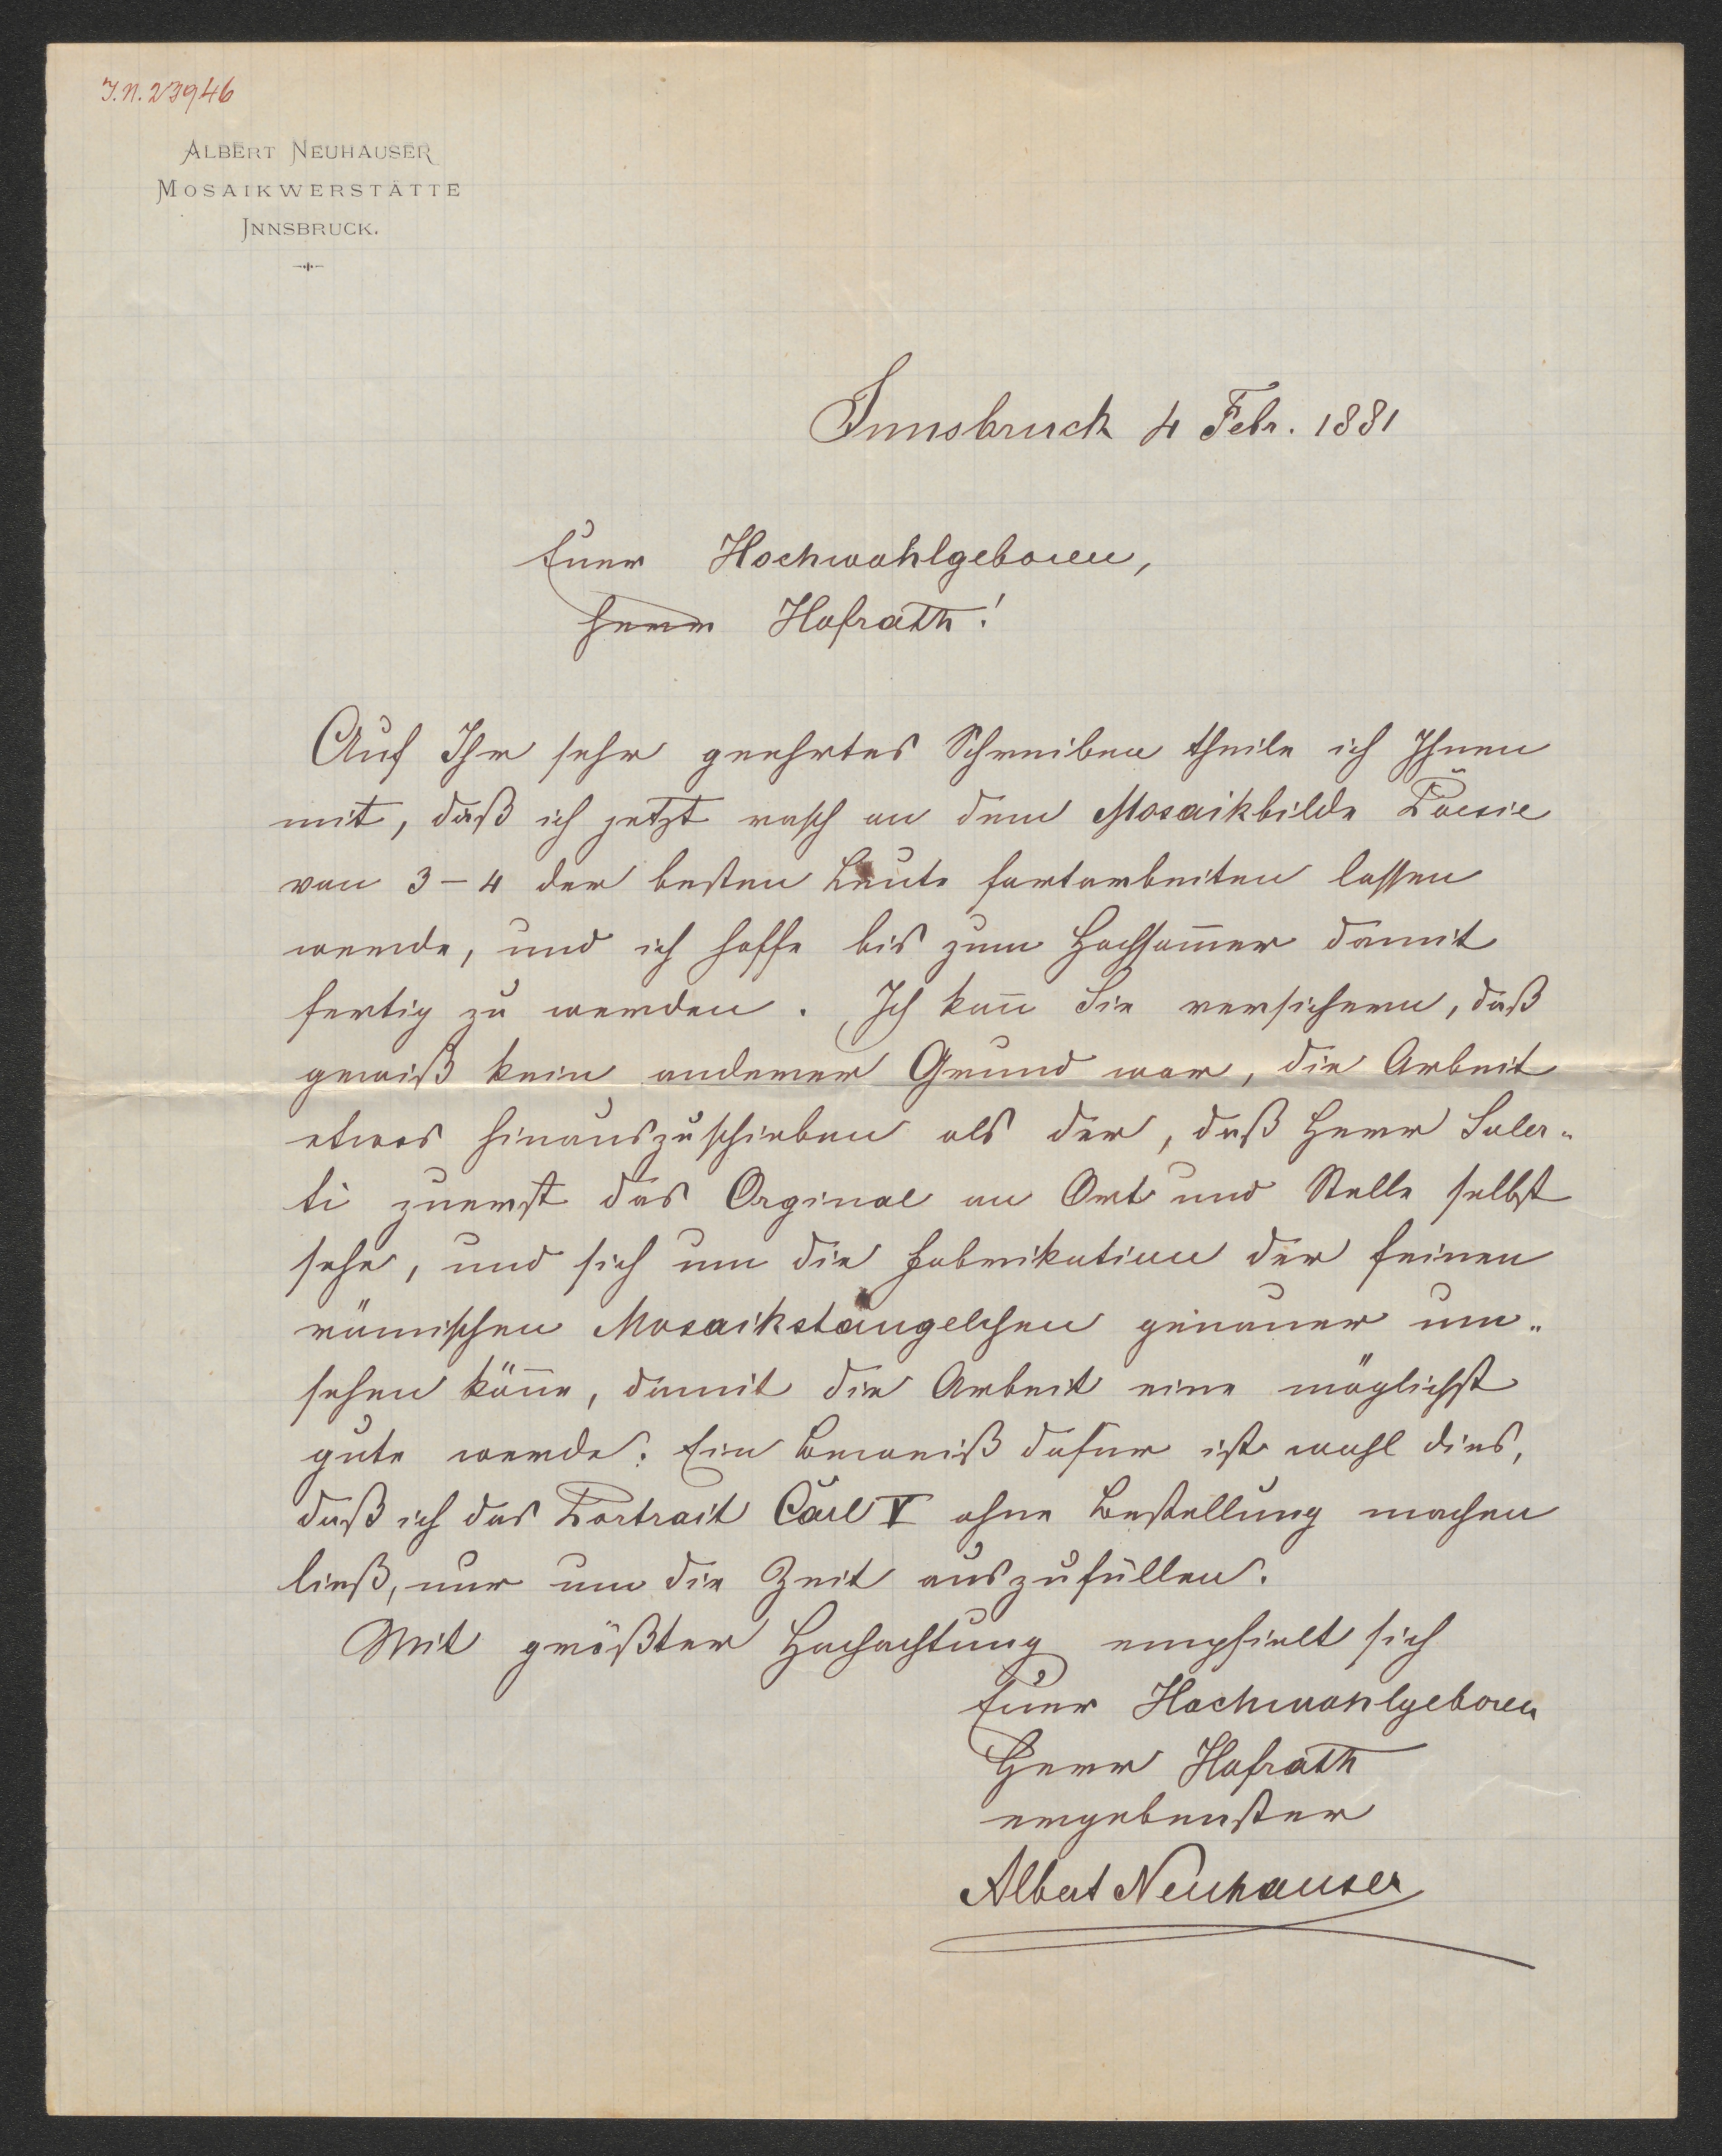 I.N. 23946
ALBERT NEUHAUSER
MOSAIKWERSTÄTTE
INNSBRUCK.
Innsbruck 4 Febr. 1881
Euer Hochwohlgeboren,
Herrn Hofrath!
Auf Ihr sehr geehrtes Schreiben theile ich Ihnen
mit, daß ich jetzt rasch an dem Mosaikbilde Poesie
von 3–4 der besten Leute fortarbeiten lassen
werde, und ich hoffe bis zum Hochsom̄er damit
fertig zu werden. Ich kan̄ Sie versichern, daß
gewiß kein anderer Grund war, die Arbeit
etwas hinauszuschieben als der, daß Herr Soler-
ti zuerst das Orginal an Ort und Stelle selbst
sehe, und sich um die Fabrikation der feinen
römischen Mosaikstängelchen genauer um-
sehen kön̄e, damit die Arbeit eine möglichst
gute werde. Ein Beweiß dafür ist wohl dies,
daß ich das Portrait Carl V ohne Bestellung machen
ließ, nur um die Zeit auszufüllen.
Mit größter Hochachtung empfielt sich
Euer Hochwohlgeboren
Herrn Hofrath
ergebenster
Albert Neuhauser